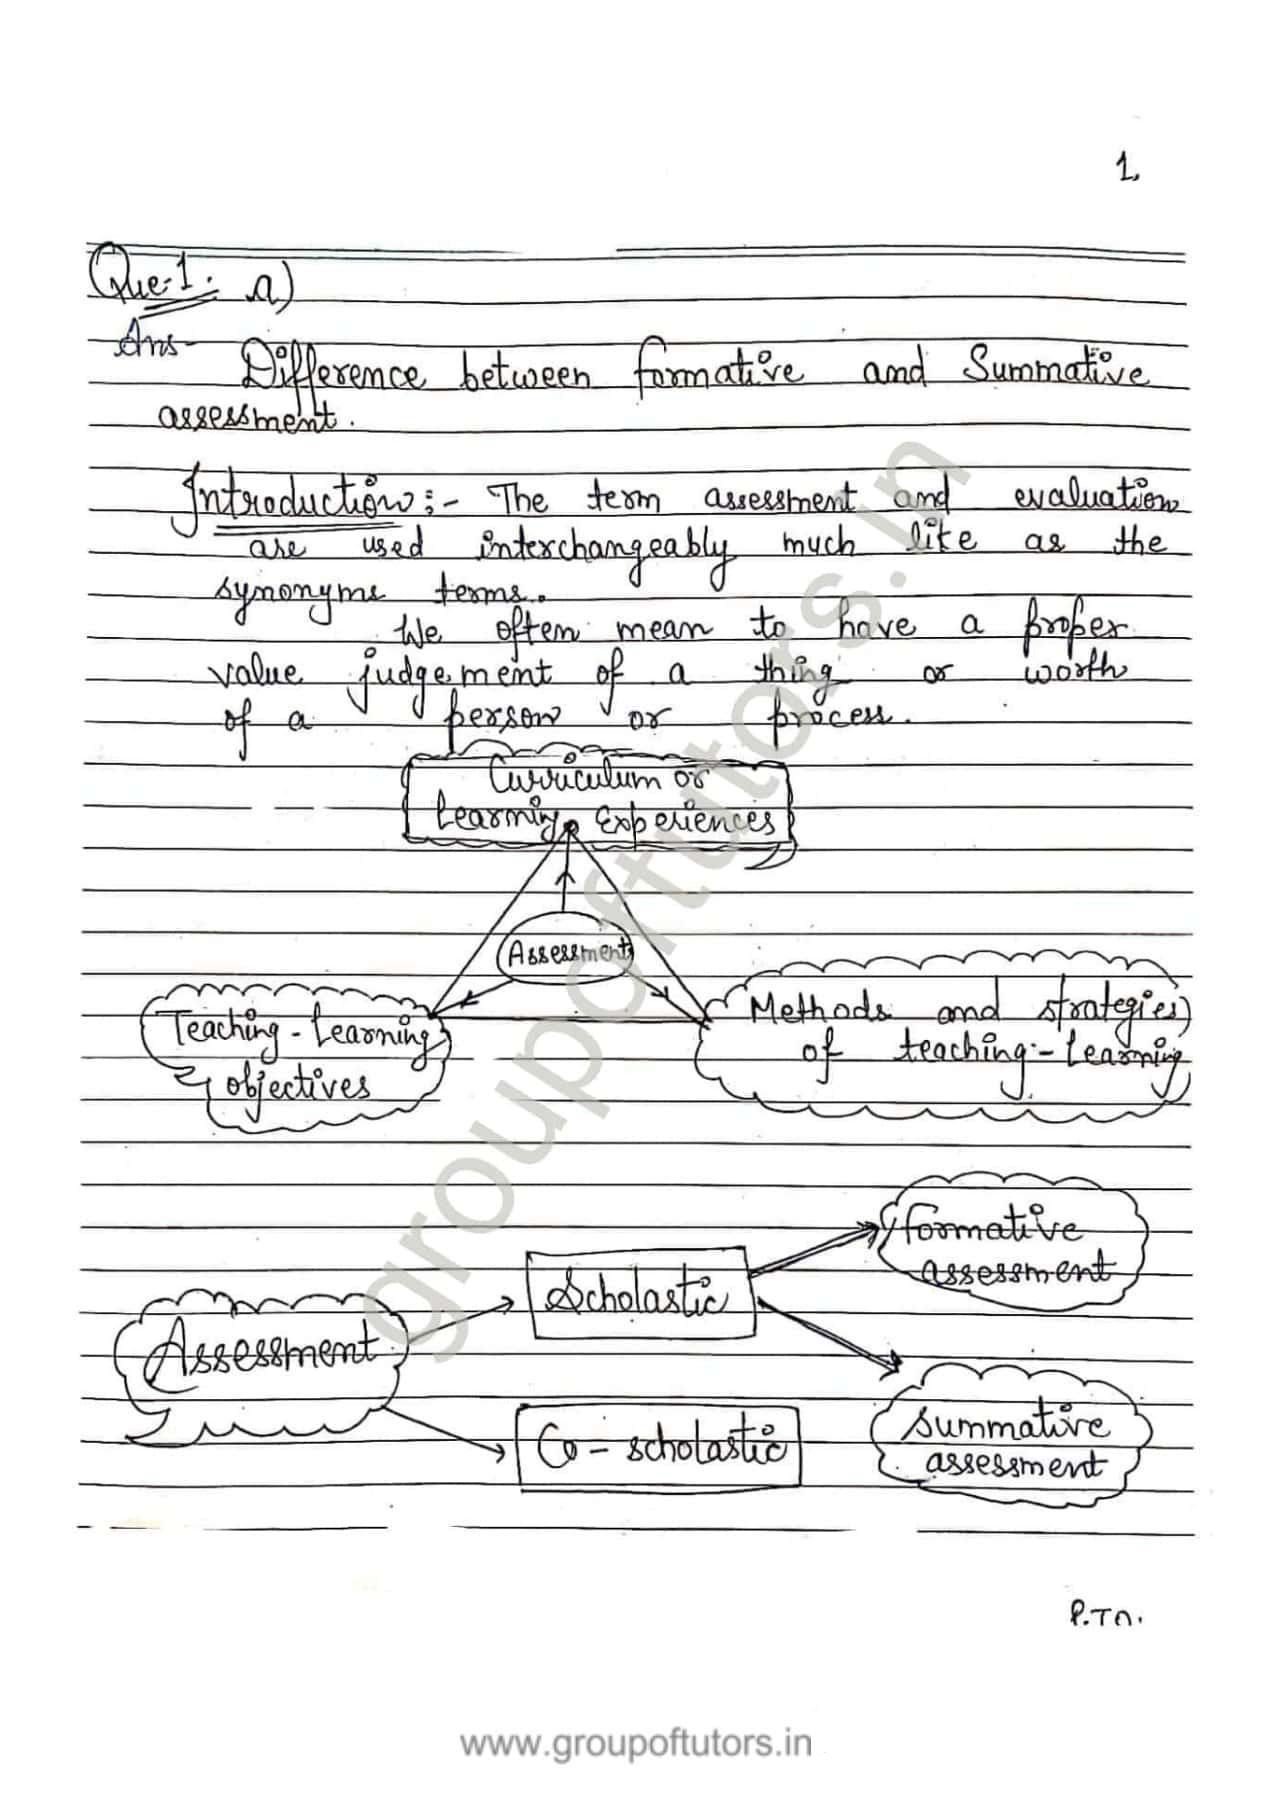 1.
Que-1. a)
Ans- Difference between formative and Summative
assessment.
Introduction:- The term assessment and evaluation
are used interchangeably much like as the
synonyms terms.
We often mean to have a proper
value judgement of a thing or worth
of a person or process.
Curriculum or
Learning Experiences
Assessment
Teaching-Learning
objectives
Methods and strategies
of teaching-Learning
Formative
assessment
Scholastic
Assessment
Summative
assessment
Co-scholastic
P.T.O.
groupoftutors.in
www.groupoftutors.in